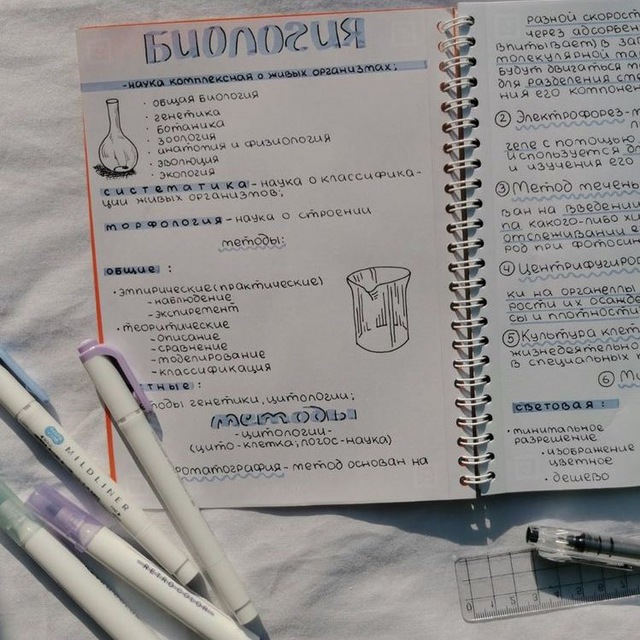 БИОЛОГИЯ
-наука комплексная о живых организмах:
· общая биология
· генетика
· ботаника
· зоология
· анатомия и физиология
· эволюция
· экология
систематика - наука о классифика-
ции живых организмов;
морфология - наука о строении
методы:
общие :
· эмпирические(практические)
-наблюдение
-экспиремент
· теоритические
-описание
-сравнение
-моделирование
-классификация
тные:
тоды генетики, цитологии;
методы
-цитологии-
(цито-клетка; логос-наука)
роматография - метод основан на
разной скорост
через адсорбен
впитывает) в за
молекулярной
будут двигаться
для разделения
ния его компонен
② Электрофорез-
геле с помощью
используется
и изучения его
③ Метод мечен
ван на введении
па какого-либо
отслеживании е
род при фотоси
④ Центрифугиро
ки на органеллы
рости их осажд
сы и плотности
⑤ Культура клет
жизнедеятельно
в специальных
⑥ Ми
световая:
· минимальное
разрешение
· изображение
цветное
· дёшево
MILDLINER
RETRO COLOR
0 1 2 3